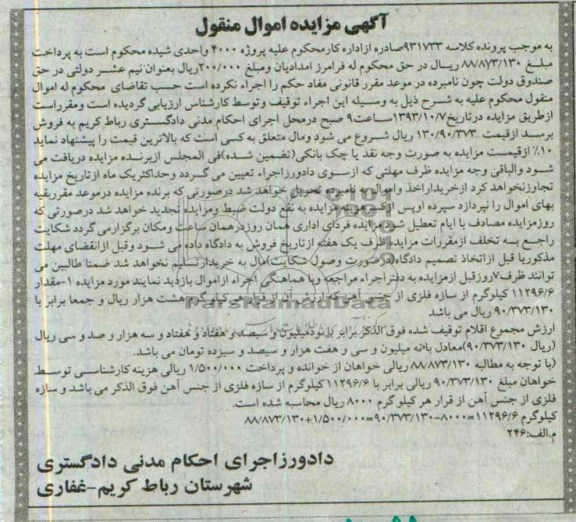 آگهی مزایده اموال منقول
به موجب پرونده کلاسه ۹۳۱۷۳۳صادره ازاداره کارمحکوم علیه پروژه ۴۰۰۰ واحدی شیده محکوم است به پرداخت
مبلغ ۸۸/۸۷۳/۱۳۰ ریال در حق محکوم له فرامرز امدادیان ومبلغ ۲۰۰/۰۰۰ریال بعنوان نیم عشر دولتی در حق
صندوق دولت چون نامبرده در موعد مقرر قانونی مفاد حکم را اجراء نکرده است حسب تقاضای محکوم له اموال
منقول محکوم علیه به شرح ذیل به وسیله این اجراء توقیف وتوسط کارشناس ارزیابی گردیده است ومقرراست
ازطریق مزایده درتاریخ۱۳۹۳/۱۰/۷ساعت۹ صبح درمحل اجرای احکام مدنی دادگستری رباط کریم به فروش
برسد ازقیمت ۱۳۰/۹۰/۳۷۳ ریال شروع می شود ومال متعلق به کسی است که بالاترین قیمت را پیشنهاد نماید
۱۰٪ ازقیمت مزایده به صورت وجه نقد یا چک بانکی(تضمین شده)فی المجلس ازبرنده مزایده دریافت می
شود والباقی وجه مزایده ظرف مهلتی که ازسوی دادورزاجراء تعیین می گردد وحداکثریک ماه ازتاریخ مزایده
تجاوزنخواهد کرد ازخریداراخذ واموال به نامبرده تحویل خواهد شد درصورتی که برنده مزایده درموعد مقرربقیه
بهای اموال را نپردازد سپرده اوپس ازکسر هزینه مزایده به نفع دولت ضبط ومزایده تجدید خواهد شد درصورتی که
روزمزایده مصادف با ایام تعطیل شود مزایده فردای اداری همان روزدرهمان ساعت ومکان برگزارمی گردد شکایت
راجع به تخلف ازمقررات مزایده ظرف یک هفته ازتاریخ فروش به دادگاه داده می شود وقبل ازانقضای مهلت
مذکوریا قبل ازاتخاذ تصمیم دادگاه(درصورت وصول شکایت)مال به خریدارتسلیم نخواهد شد ضمنا طالبین می
توانند ظرف۷روزقبل ازمزایده به دفتراجراء مراجعه وبا هماهنگی اجراء ازاموال بازدید نمایند مورد مزایده ۱-مقدار
۱۱۲۹۶/۶ کیلوگرم از سازه فلزی از جنس آهن که ارزش آن از قرار هر کیلوگرم هشت هزار ریال و جمعا برابر با
۹۰/۳۷۳/۱۳۰ ریال می باشد
ارزش مجموع اقلام توقیف شده فوق الذکر برابر با نودمیلیون و سیصد و هفتاد و هفتاد و سه هزار و صد و سی ریال
(ریال ۹۰/۳۷۳/۱۳۰)معادل بانه میلیون و سی و هفت هزار و سیصد و سیزده تومان می باشد.
(با توجه به مطالبه ۸۸/۸۷۳/۱۳۰ ریالی خواهان از خوانده و پرداخت ۱/۵۰۰/۰۰۰ ریالی هزینه کارشناسی توسط
خواهان مبلغ ۹۰/۳۷۳/۱۳۰ ریالی برابر با ۱۱۲۹۶/۶ کیلوگرم از سازه فلزی از جنس آهن فوق الذکر می باشد و سازه
فلزی از جنس آهن از قرار هر کیلو گرم ۸۰۰۰ ریال محاسبه شده است.
کیلوگرم ۱۱۲۹۶/۶=۸۰۰۰-۹۰/۳۷۳/۱۳۰=۸۸/۸۷۳/۱۳۰+۱/۵۰۰/۰۰۰
م.الف:۲۴۶
دادورزاجرای احکام مدنی دادگستری
شهرستان رباط کریم-غفاری
ParsNamadData